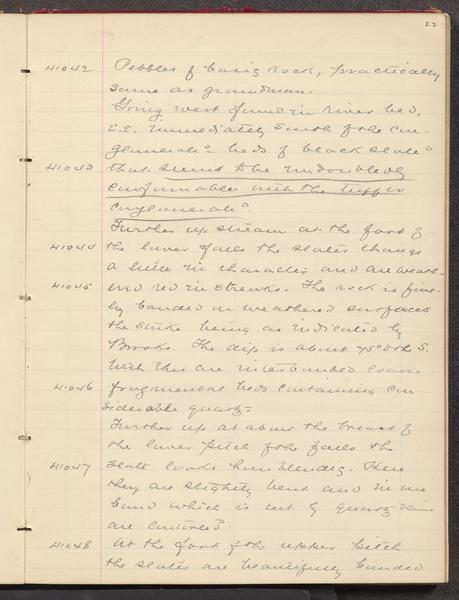 22
41042 Pebbles of basic rock, practically
same as groundmass.
Going west found in river bed,
i.e. immediately south of the con-
glomerate beds of black slate
41043 that seems to be undoubtedly
conformable with the tuffer
conglomerate.
Further up stream at the foot of
41044 the lower falls the slates change
a little in character and are weath-
41045 ered red in streaks. The rock is fine-
ly banded on weathered surfaces
the strike being as indicated by
Brooks. The dip is about 75° to the S.
With this are interbanded coarse
41046 fragmental beds containing con-
siderable quartz.
Further up at about the breast of
the lower pitch of the falls the
41047 slate looks hornblendic. Here
they are slightly bent and in one
band which is cut by quartz veins
are contorted.
41048 At the foot of the upper pitch
the slates are beautifully banded